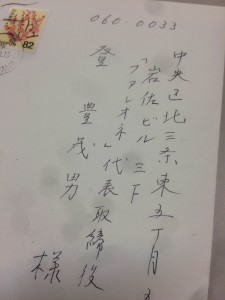 82
060-0033
中央区北三条東五丁目五
岩佐ビル三F
「ファレオネ」代表取締役
登豊茂男
様